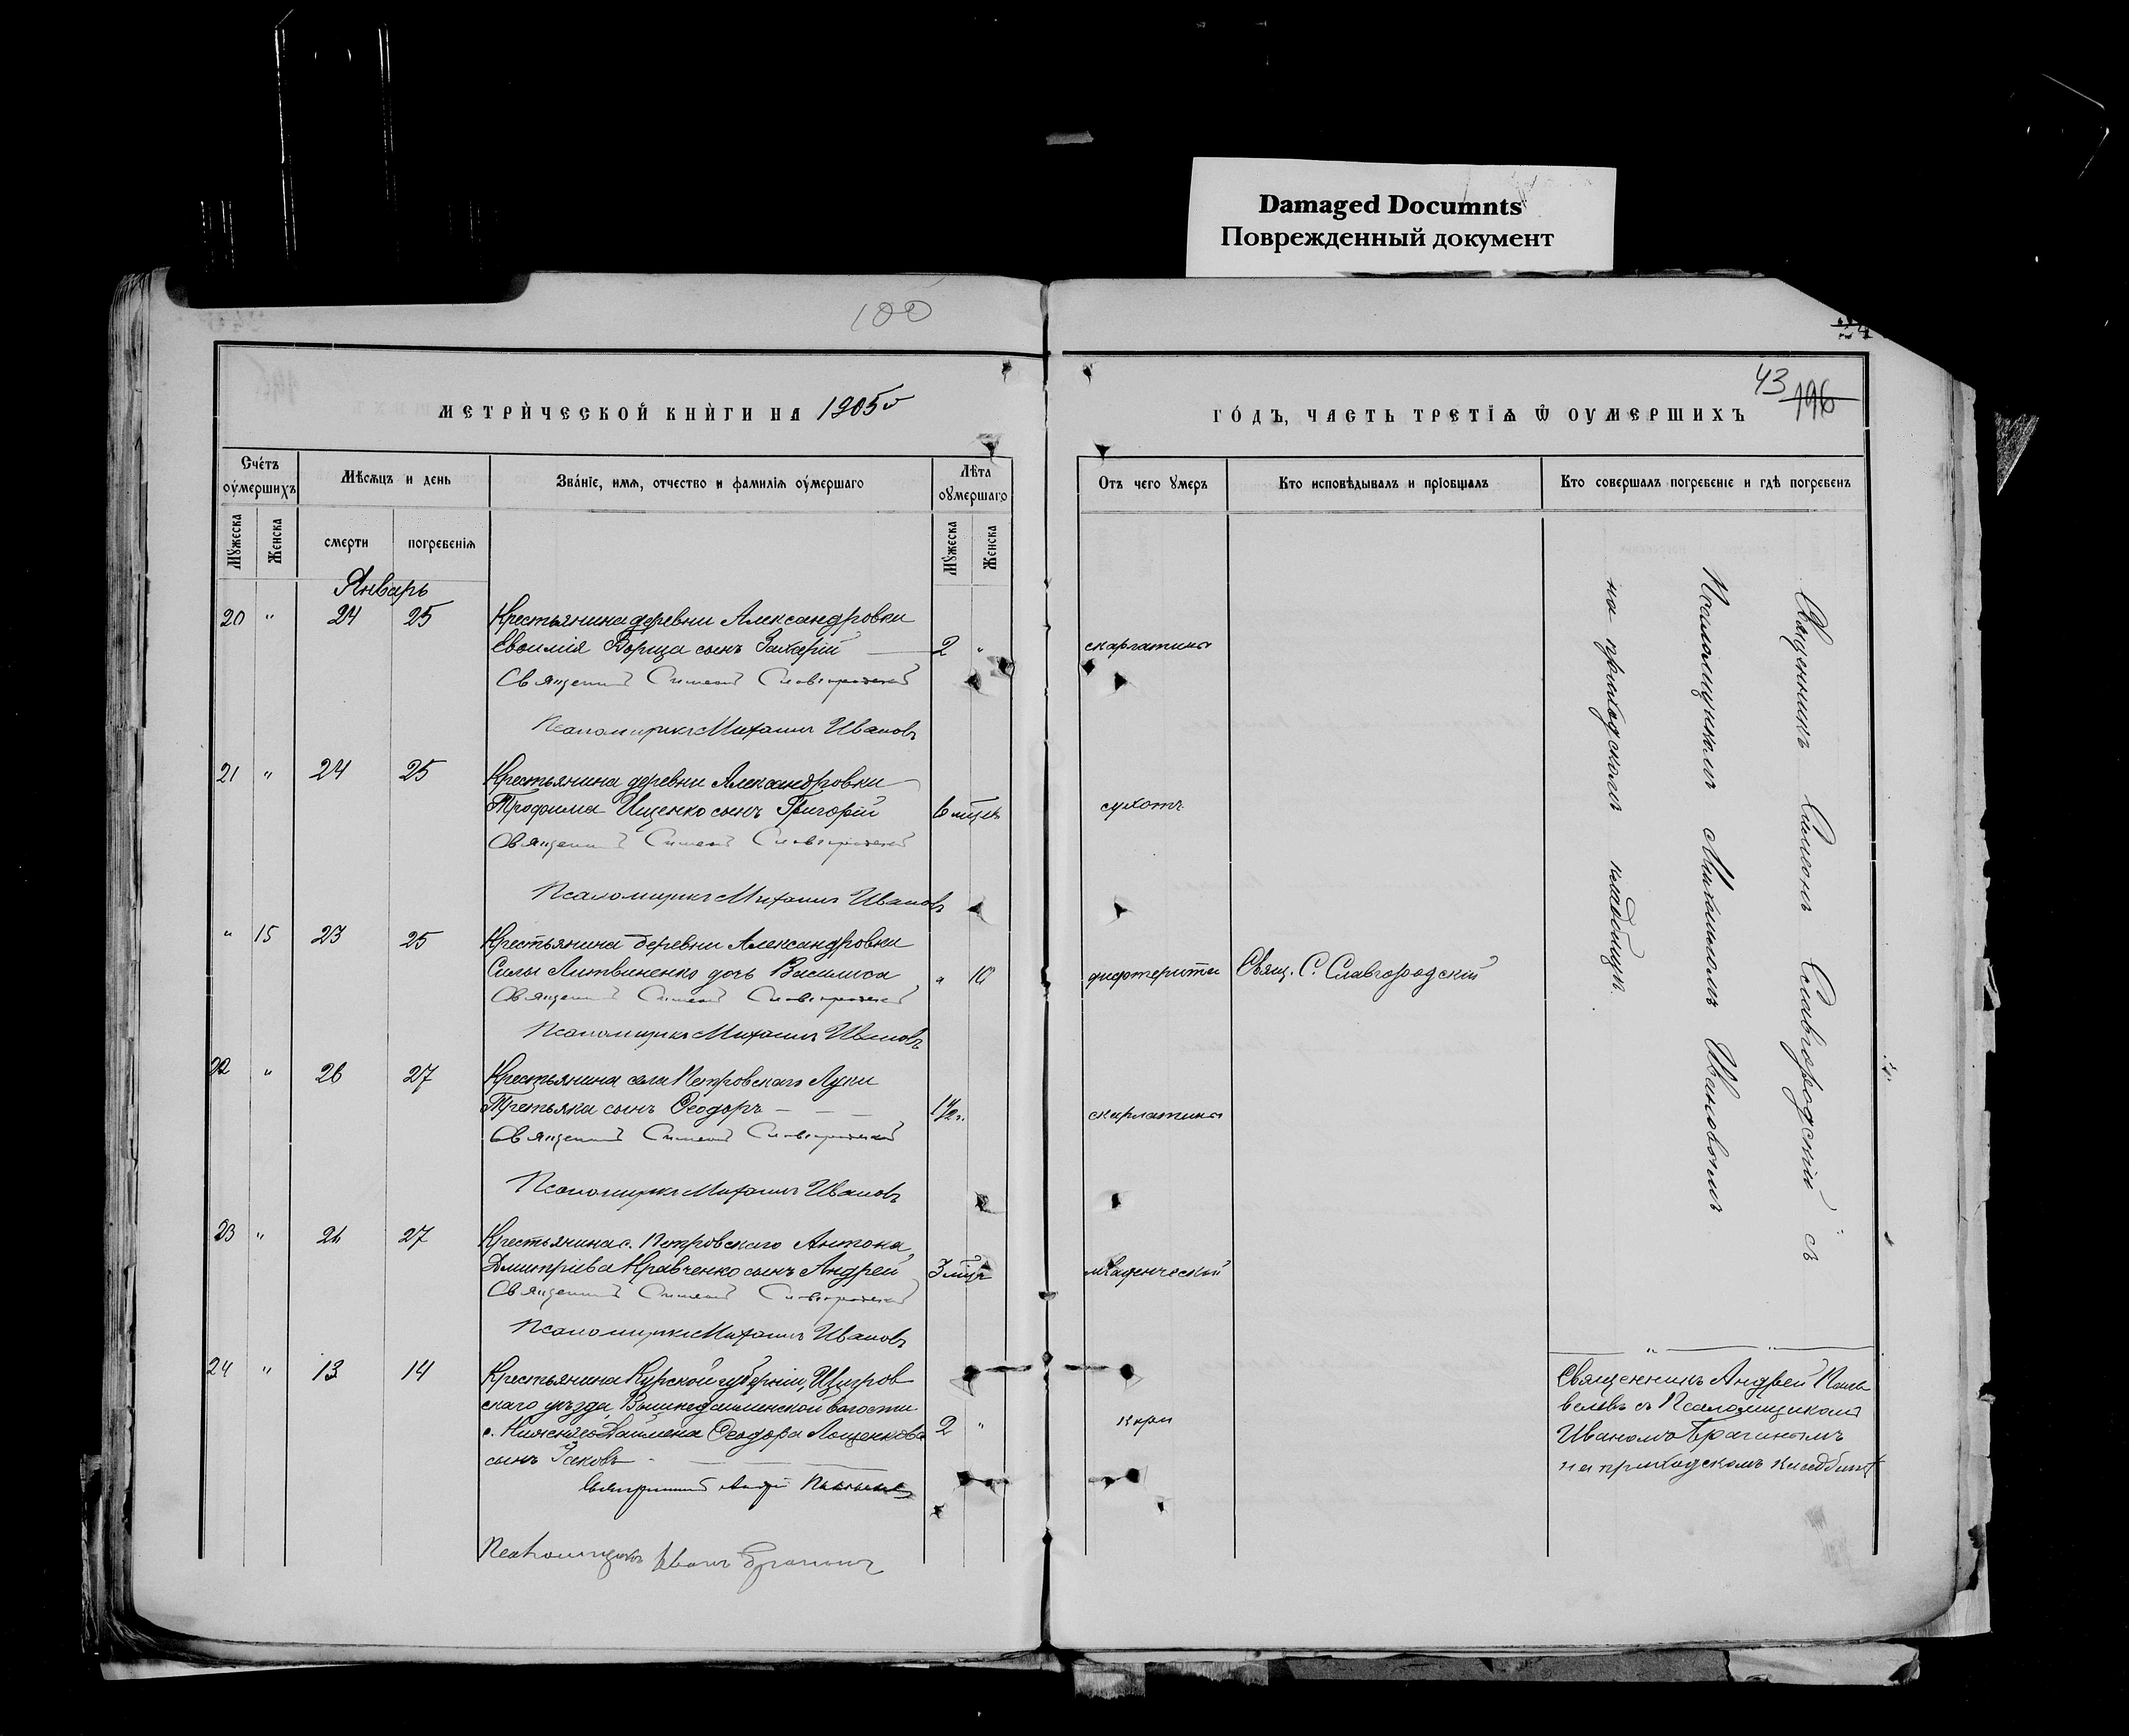 Damaged Documnts
Поврежденный документ
100
43
196
МЕТРИЧЕСКОЙ КНИГИ НА 1905й
ГОДЪ, ЧАСТЬ ТРЕТІЯ Ѡ ОУМЕРШИХЪ
Счетъ оумершихъ
Мѣсяцъ и день
Званіе, имя, отчество и фамилія оумершаго
Лѣта оумершаго
Отъ чего умеръ
Кто исповѣдывалъ и пріобщалъ
Кто совершалъ погребеніе и гдѣ погребенъ
Мужеска
Женска
смерти
погребенія
Мужеска
Женска
Январь
20 " 24 25 Крестьянина деревни Александровки
Евѳимія Борща сынъ Захарій 2 " скарлатины
Священникъ Симеонъ Славгородский
Псаломщикъ Михаилъ Ивановъ
21 " 24 25 Крестьянина деревни Александровки
Трофима Ищенко сынъ Григорій 6 мцвъ сухотъ
Священникъ Симеонъ Славгородский
Псаломщикъ Михаилъ Ивановъ
" 15 23 25 Крестьянина деревни Александровки
Силы Литвиненко дочь Василиса " 10 дифтерита Свящ. С. Славгородскій
Священникъ Симеонъ Славгородский
Псаломщикъ Михаилъ Ивановъ
22 " 26 27 Крестьянина села Петровскаго Луки
Третьяка сынъ Ѳеодоръ 1 1/2 г. скарлатины
Священникъ Симеонъ Славгородский
Псаломщикъ Михаилъ Ивановъ
23 " 26 27 Крестьянина с. Петровскаго Антона
Дмитріева Кравченко сынъ Андрей 3 мцъ младенческой
Священникъ Симеонъ Славгородский
Псаломщикъ Михаилъ Ивановъ
Священникъ Симеонъ Славгородскій съ
Псаломщикомъ Михаиломъ Ивановымъ
на приходскомъ кладбищѣ.
24 " 13 14 Крестьянина Курской губерніи, Щигров
скаго уѣзда, волости
с. Ѳеодора Лощенкова 2 " кори
сынъ Іаковъ
Священникъ Андрей
Псаломщикъ Иванъ Брагинъ
Священникъ Андрей
съ Псаломщикомъ
Иваномъ Брагинымъ
на приходскомъ кладбищѣ